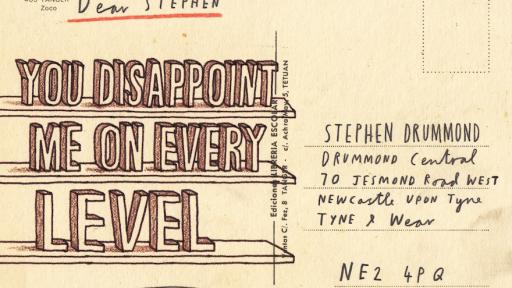 Zoco
Dear STEPHEN
YOU DISAPPOINT
ME ON EVERY
LEVEL
STEPHEN DRUMMOND
DRUMMOND Central
70 JESMOND Road WEST
NEWCastle UPON Tyne
TYNE & Wear
NE2 4PQ
Ediciones LIBRERIA ESCOLAR
c/. Fez, 8 TANGER - c/. Achra Mayo 5, TETUAN